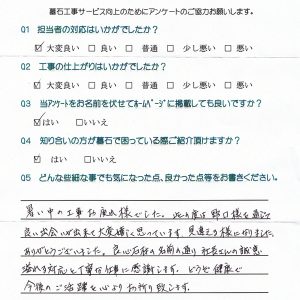 墓石工事サービス向上のためにアンケートのご協力お願いします。
Q1 担当者の対応はいかがでしたか？
☑大変良い □良い □普通 □少し悪い □悪い
Q2 工事の仕上がりはいかがでしたか？
☑大変良い □良い □普通 □少し悪い □悪い
Q3 当アンケートをお名前を伏せてホームページに掲載しても良いですか？
☑はい □いいえ
Q4 知り合いの方が墓石で困っている際ご紹介頂けますか？
☑はい □いいえ
Q5 どんな些細な事でも気になった点、良かった点等をお書きください。
暑い中の工事お疲れ様でした。此の度は野口様を通じて
良い出会いが出来て大変嬉しく思っています。見違える様になりました。
ありがとうございました。良心石材の名前の通り社長さんの誠意
溢れる対応と丁寧な仕事に感謝します。どうぞ健康で
今後のご活躍を心よりお祈り致します。